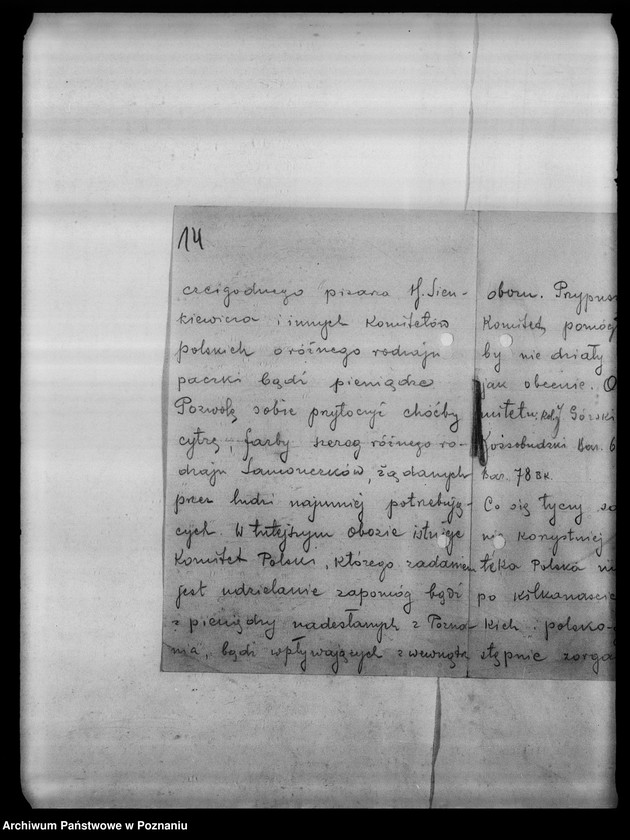 14
czcigodnego pisarza H. Sien-
kiewicza i innych Komitetów
polskich o różnego rodzaju
paczki bądź pieniądze
Pozwolę sobie przytoczyć choćby
cytrę, farby szereg różnego ro-
dzaju Samouczków, żądanych
przez ludzi najmniej potrzebują-
cych. W tutejszym obozie istnieje
Komitet Polski, którego zadaniem
jest udzielanie zapomóg bądź
z pieniędzy nadesłanych z Pozna-
nia, bądź wpływających z wewnątrz
obozu. Przypus
Komitet, pomóc
by nie działy
jak obecnie. O
mitetu, Górski
Kossobudzki Bar. 6
Bar. 78 
Co się tyczy sa
nią korzystniej
teka Polska
po kilkanaście
kich i polsko-
stępnie zorga
Archiwum Państwowe w Poznaniu